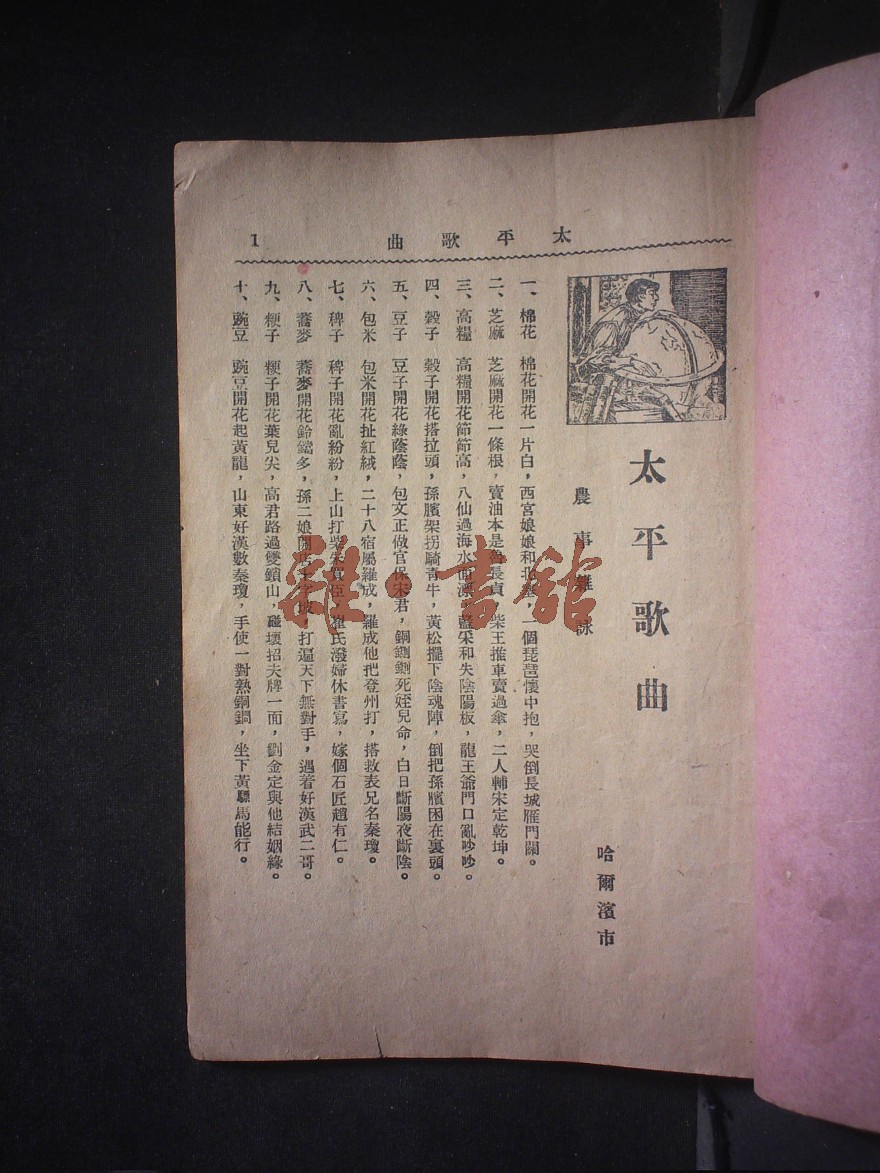 太平歌曲 1
太平歌曲
農事雜詠
哈爾濱市
一、棉花 棉花開花一片白，西宮娘娘和北塞，一個琵琶懷中抱，哭倒長城雁門關。
二、芝麻 芝麻開花一條根，賣油本是魯長貞，柴王推車賣過傘，二人輔宋定乾坤。
三、高糧 高糧開花節節高，八仙過海水面漂，藍采和失陰陽板，龍王爺門口亂吵吵。
四、穀子 穀子開花搭拉頭，孫臏架拐騎青牛，黃松擺下陰魂陣，倒把孫臏困在裏頭。
五、豆子 豆子開花綠蔭蔭，包文正做官保宋君，銅鍘鍘死姪兒命，白日斷陽夜斷陰。
六、包米 包米開花扯紅絨，二十八宿屬羅成，羅成他把登州打，搭救表兄名秦瓊。
七、稗子 稗子開花亂紛紛，上山打柴朱買臣，崔氏潑婦休書寫，嫁個石匠趙有仁。
八、蕎麥 蕎麥開花鈴鐺多，孫二娘開店十字坡，打遍天下無對手，遇着好漢武二哥。
九、粳子 粳子開花葉兒尖，高君路過雙鎖山，碰壞招夫牌一面，劉金定與他結姻緣。
十、豌豆 豌豆開花起黃龍，山東好漢數秦瓊，手使一對熟銅鐧，坐下黃驃馬能行。
雜·書館